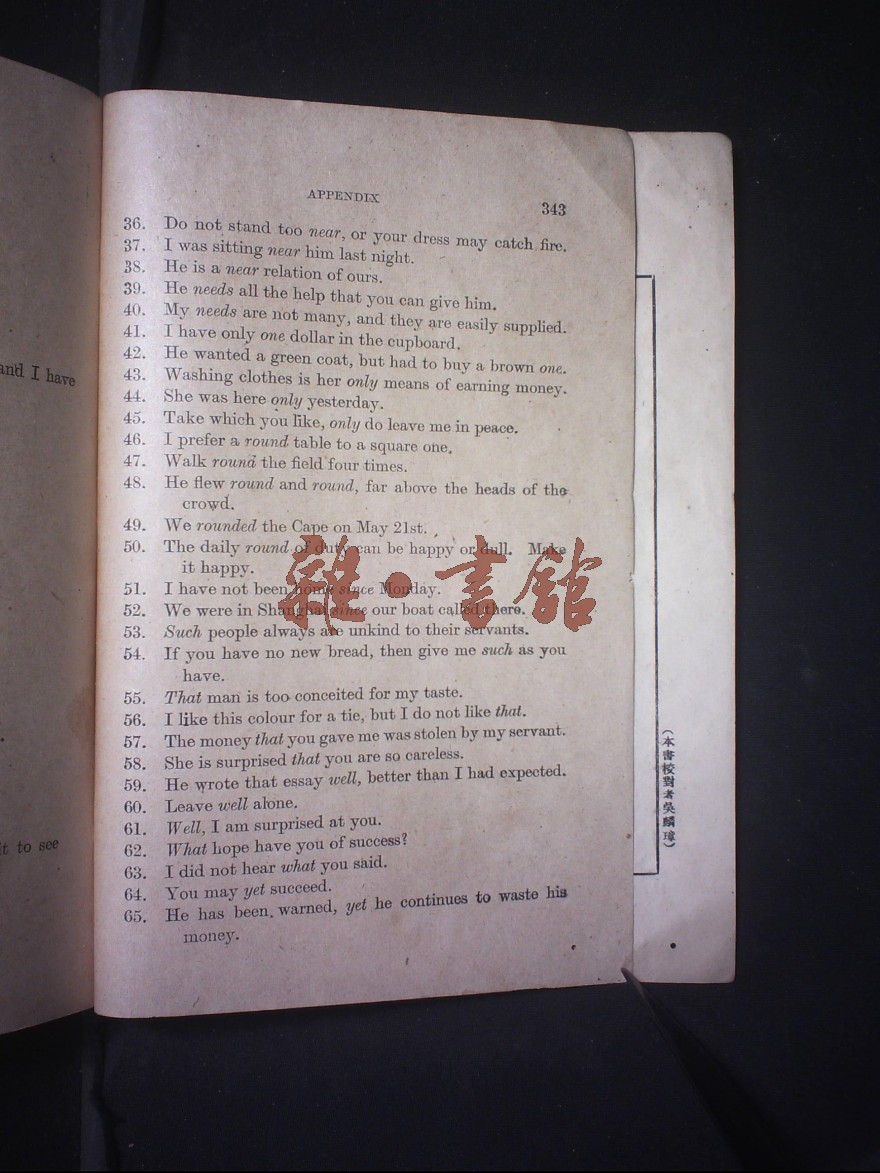 and I have
it to see
APPENDIX
343
36. Do not stand too near, or your dress may catch fire.
37. I was sitting near him last night.
38. He is a near relation of ours.
39. He needs all the help that you can give him.
40. My needs are not many, and they are easily supplied.
41. I have only one dollar in the cupboard.
42. He wanted a green coat, but had to buy a brown one.
43. Washing clothes is her only means of earning money.
44. She was here only yesterday.
45. Take which you like, only do leave me in peace.
46. I prefer a round table to a square one.
47. Walk round the field four times.
48. He flew round and round, far above the heads of the
crowd.
49. We rounded the Cape on May 21st.
50. The daily round of duty can be happy or dull. Make
it happy.
51. I have not been home since Monday.
52. We were in Shanghai since our boat called there.
53. Such people always are unkind to their servants.
54. If you have no new bread, then give me such as you
have.
55. That man is too conceited for my taste.
56. I like this colour for a tie, but I do not like that.
57. The money that you gave me was stolen by my servant.
58. She is surprised that you are so careless.
59. He wrote that essay well, better than I had expected.
60. Leave well alone.
61. Well, I am surprised at you.
62. What hope have you of success?
63. I did not hear what you said.
64. You may yet succeed.
65. He has been warned, yet he continues to waste his
money.
雜·書館
(本書校對者吳麟璋)